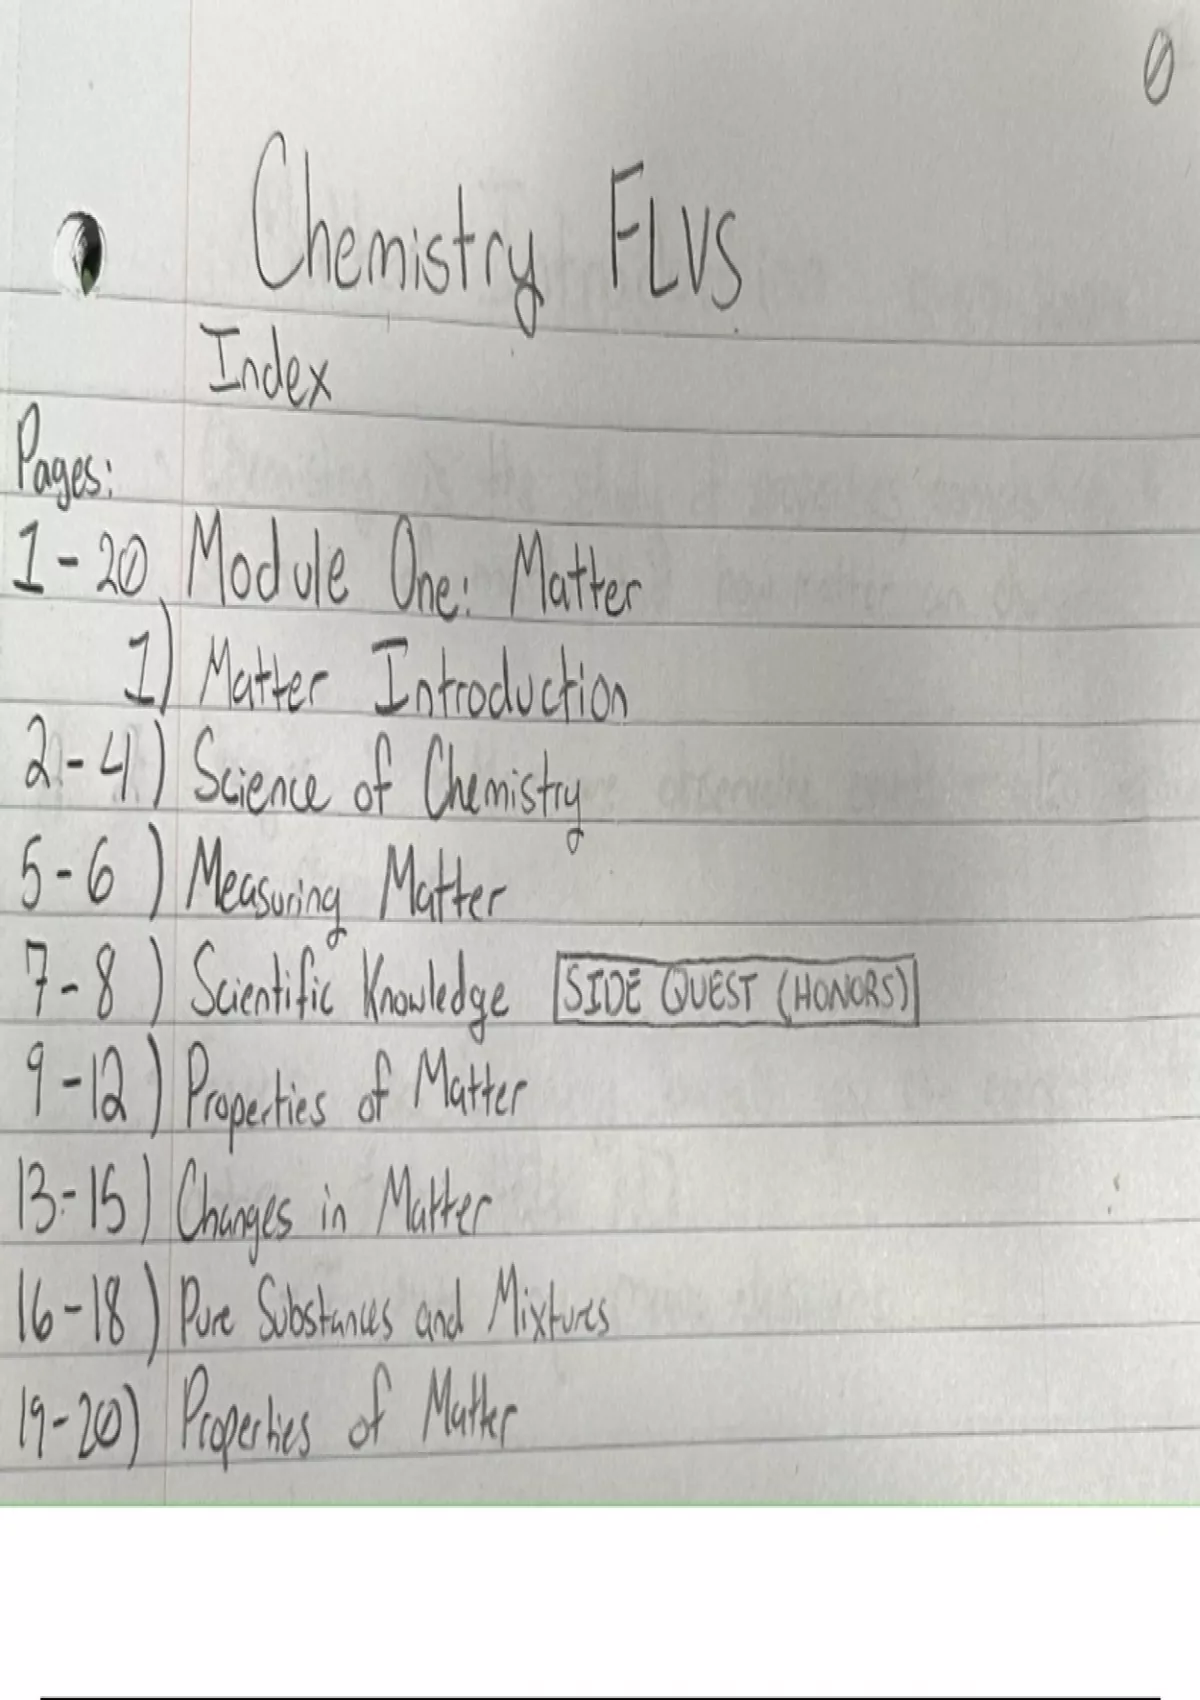 0
Chemistry FLVS
Index
Pages:
1-20 Module One: Matter
1) Matter Introduction
2-4) Science of Chemistry
5-6) Measuring Matter
7-8) Scientific Knowledge SIDE QUEST (HONORS)
9-12) Properties of Matter
13-15) Changes in Matter
16-18) Pure Substances and Mixtures
19-20) Properties of Matter